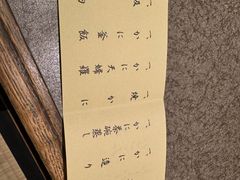 一、かに造り
一、かに茶碗蒸し
一、焼かに
一、かに天婦羅
一、かに釜飯